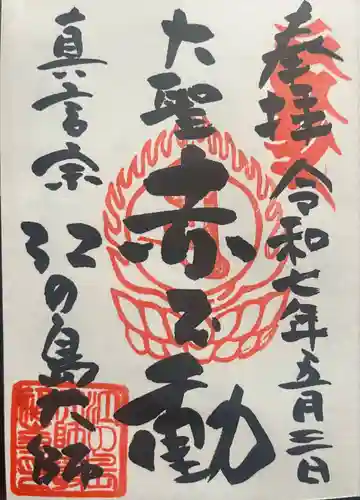 奉拝 令和七年五月三日
大聖 赤不動
真言宗 江の島大師